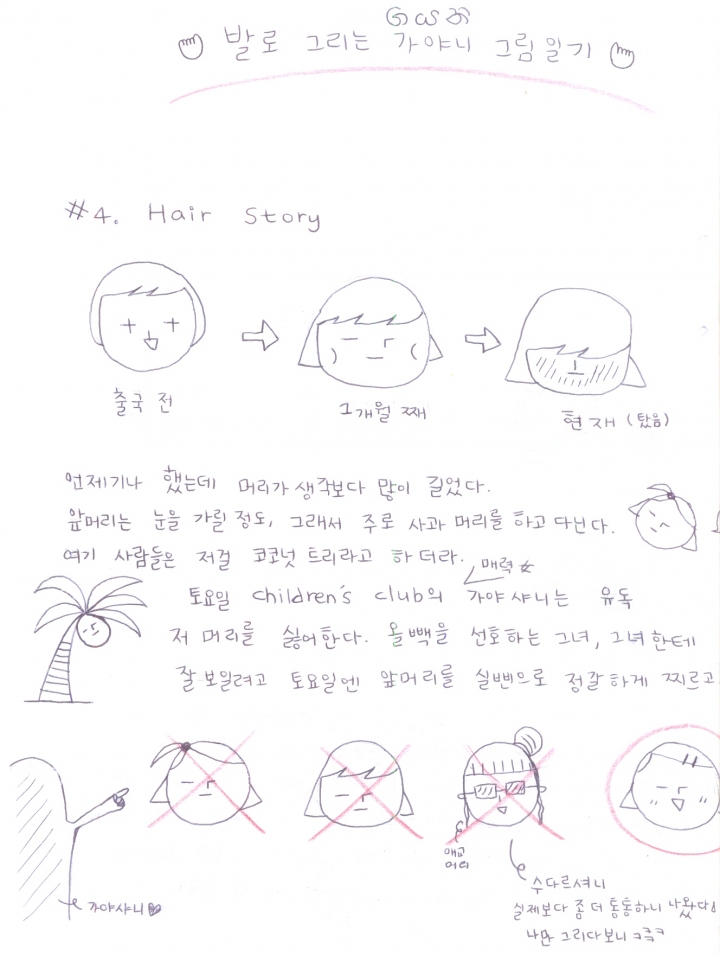 발로 그리는 가야니 그림일기
#4. Hair Story
출국 전
1개월 째
현재 (탔음)
언제기나 했는데 머리가 생각보다 많이 길었다.
앞머리는 눈을 가릴 정도, 그래서 주로 사과 머리를 하고 다닌다.
여기 사람들은 저걸 코코넛 트리라고 하더라.
매력
토요일 children's club의 가야샤니는 유독
저 머리를 싫어한다. 올빽을 선호하는 그녀, 그녀한테
잘보일려고 토요일엔 앞머리를 실삔으로 정갈하게 찌르고
애교
머리
가야샤니
수다르셔니
실제보다 좀 더 통통하니 나왔다
나만 그리다보니 ㅋ큭ㅋ